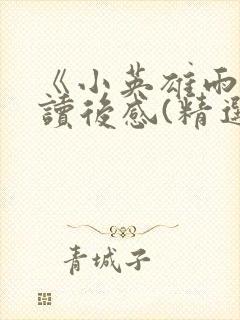 《小英雄雨
讀後感(精選
青城子